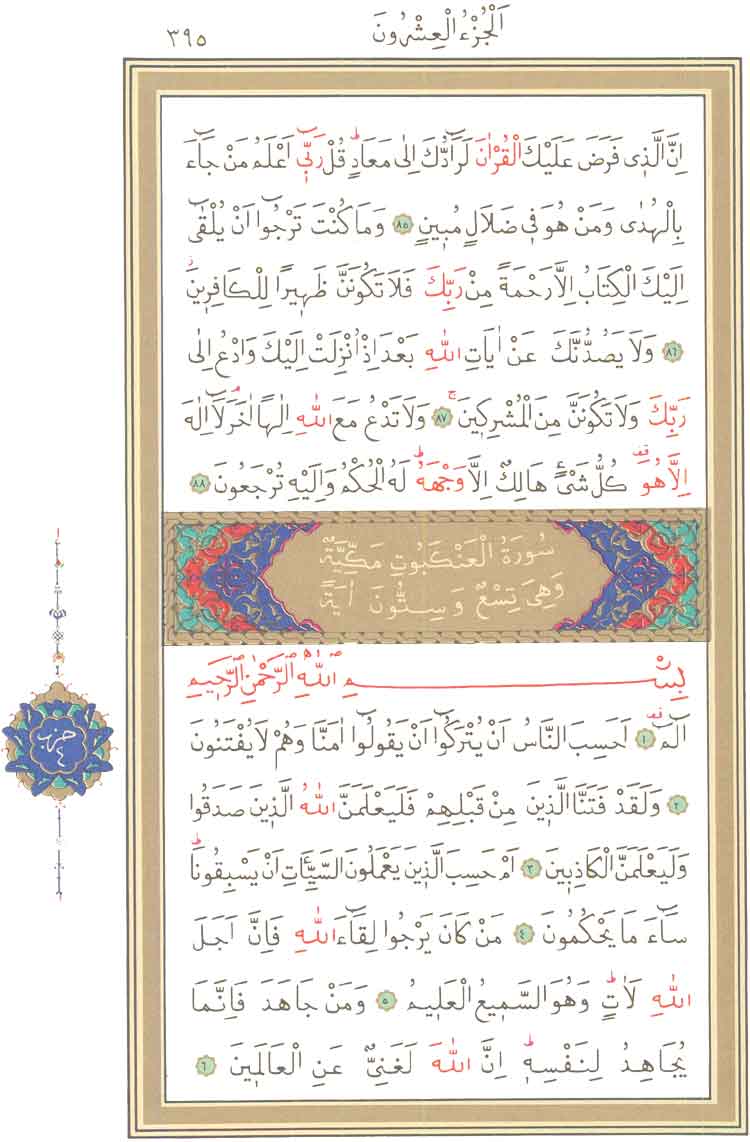 اَلْجُزْءُ الْعِشْرُونَ
٣٩٥
اِنَّ الَّذٖى فَرَضَ عَلَيْكَ الْقُرْاٰنَ لَرَٓادُّكَ اِلٰى مَعَادٍؕ قُلْ رَبّٖٓى اَعْلَمُ مَنْ جَٓاءَ
بِالْهُدٰى وَمَنْ هُوَ فٖى ضَلَالٍ مُبٖينٍ ﴿٨٥﴾ وَمَا كُنْتَ تَرْجُٓوا اَنْ يُلْقٰٓى
اِلَيْكَ الْكِتَابُ اِلَّا رَحْمَةً مِنْ رَبِّكَ فَلَا تَكُونَنَّ ظَهٖيرًا لِلْكَافِرٖينَؗ
﴿٨٦﴾ وَلَا يَصُدُّنَّكَ عَنْ اٰيَاتِ اللّٰهِ بَعْدَ اِذْ اُنْزِلَتْ اِلَيْكَ وَادْعُ اِلٰى
رَبِّكَ وَلَا تَكُونَنَّ مِنَ الْمُشْرِكٖينَۚ ﴿٨٧﴾ وَلَا تَدْعُ مَعَ اللّٰهِ اِلٰهًا اٰخَرَۘ لَٓا اِلٰهَ
اِلَّا هُوَࣞ كُلُّ شَىْءٍ هَالِكٌ اِلَّا وَجْهَهُؕ لَهُ الْحُكْمُ وَاِلَيْهِ تُرْجَعُونَ ﴿٨٨﴾
سُورَةُ الْعَنْكَبُوتِ مَكِّيَّةٌ
وَهِىَ تِسْعٌ وَسِتُّونَ اٰيَةً
بِسْمِ اللّٰهِ الرَّحْمٰنِ الرَّحٖيمِ
حزب ٤
الٓمٓࣞ ﴿١﴾ اَحَسِبَ النَّاسُ اَنْ يُتْرَكُٓوا اَنْ يَقُولُٓوا اٰمَنَّا وَهُمْ لَا يُفْتَنُونَ
﴿٢﴾ وَلَقَدْ فَتَنَّا الَّذٖينَ مِنْ قَبْلِهِمْ فَلَيَعْلَمَنَّ اللّٰهُ الَّذٖينَ صَدَقُوا
وَلَيَعْلَمَنَّ الْكَاذِبٖينَ ﴿٣﴾ اَمْ حَسِبَ الَّذٖينَ يَعْمَلُونَ السَّيِّـَٔاتِ اَنْ يَسْبِقُونَاؕ
سَٓاءَ مَا يَحْكُمُونَ ﴿٤﴾ مَنْ كَانَ يَرْجُوا لِقَٓاءَ اللّٰهِ فَاِنَّ اَجَلَ
اللّٰهِ لَاٰتٍؕ وَهُوَ السَّمٖيعُ الْعَلٖيمُ ﴿٥﴾ وَمَنْ جَاهَدَ فَاِنَّمَا
يُجَاهِدُ لِنَفْسِهٖؕ اِنَّ اللّٰهَ لَغَنِىٌّ عَنِ الْعَالَمٖينَ ﴿٦﴾